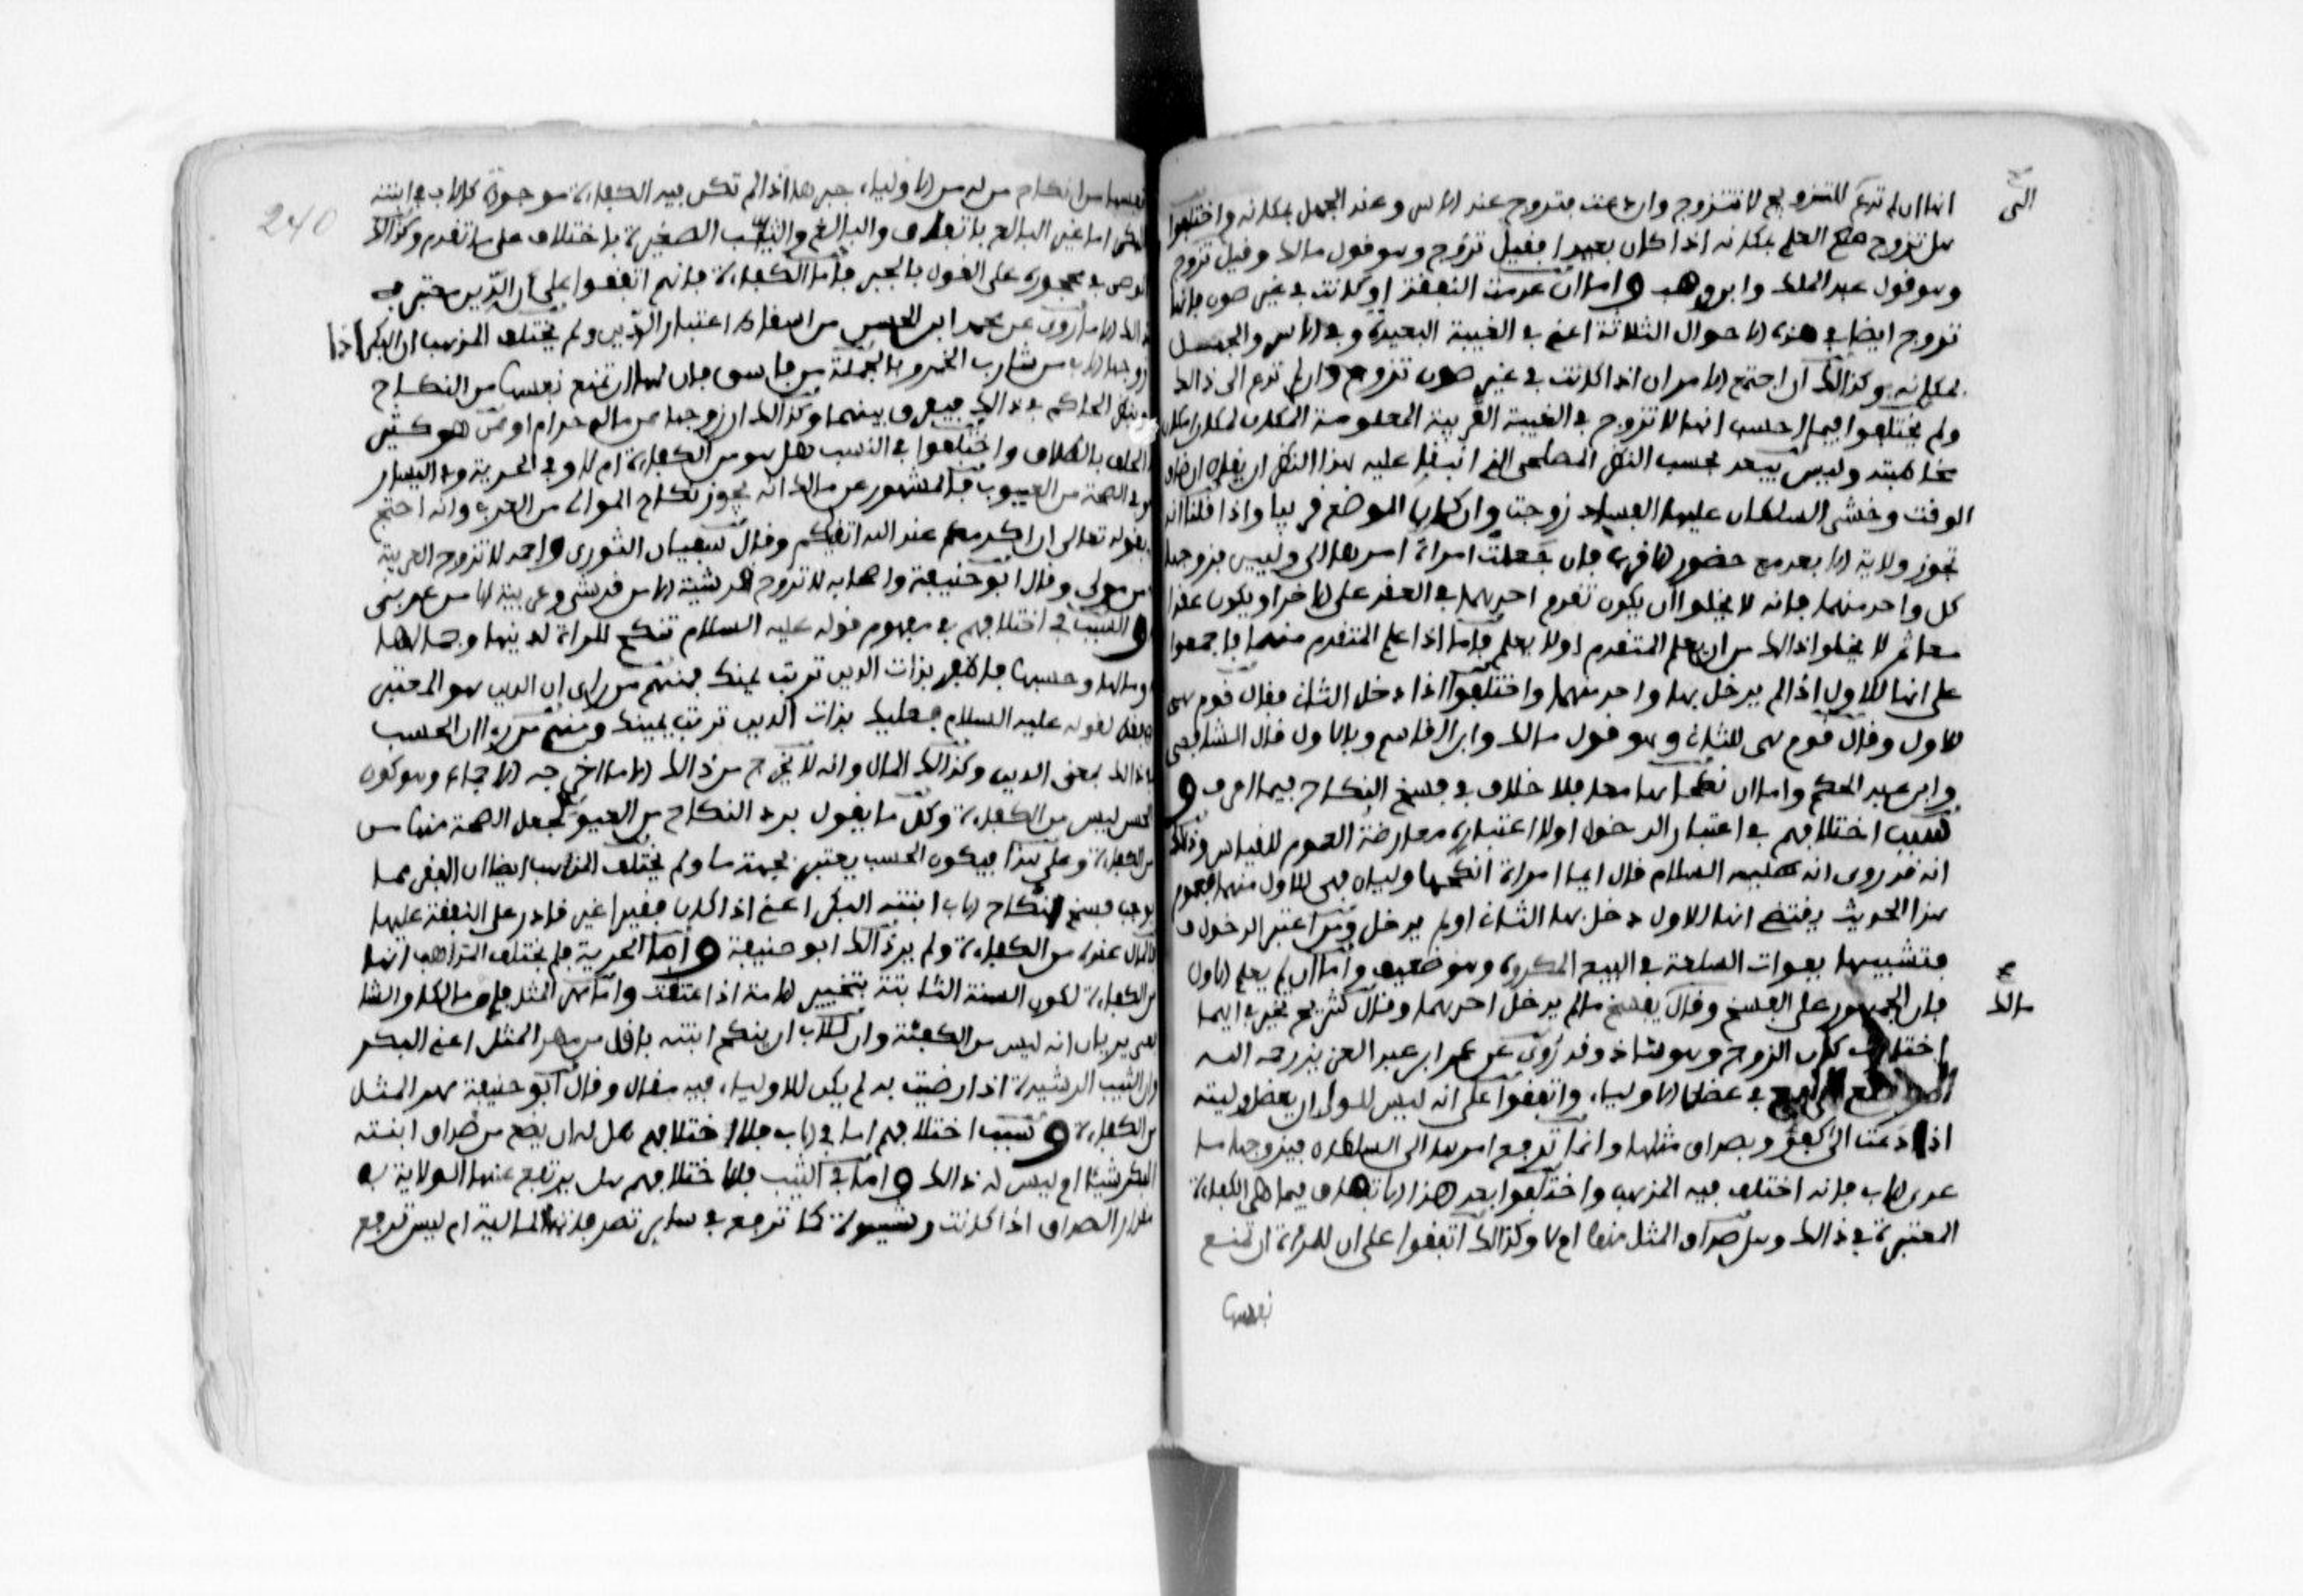 انها ان لم تدع للتزويج لا تتزوج وان دعت فتزوج عند الاسر وعند الجهل بمكانه واختلفوا
الى
هل تزوج مع العلم بمكانه اذا كان بعيدا فقيل تزوج وهو قول مالك وقيل لا تزوج
وهو قول عبد الملك وابن وهب واما ان عدمت النفقة او كانت في غير صون فانها
تزوج ايضا في هذه الاحوال الثلاثة اعني في الغيبة البعيدة وفي الاسر والجهل
بمكانه وكذالك ان اجتمع الامران اذا كانت في غير صون تزوج وان لم تدع الى ذالك
ولم يختلفوا فيما احسب انها لا تزوج في الغيبة القريبة المعلومة المكان لمكان امكان
مخاطبته وليس يبعد بحسب النظر المصلحي الذي انبنى عليه هذا النظر ان يقال ان ضاق
الوقت وخشي السلطان عليها الفساد زوجت وان كان الموضع قريبا واذا قلنا انه
تجوز ولاية الابعد مع حضور الاقرب فان جعلت امراة امرها الى وليين فزوجها
كل واحد منهما فانه لا يخلوا ان يكون تقدم احدهما في العقد على الاخر او يكون عقدا
معا ثم لا يخلوا ذالك من ان يعلم المتقدم او لا يعلم فاما اذا علم المتقدم منهما فاجمعوا
على انها للاول اذا لم يدخل بها واحد منهما واختلفوا اذا دخل الثاني فقال قوم هي
للاول وقال قوم هي للثاني وهو قول مالك وابن القاسم وبالاول قال الشافعي
وابن عبد الحكم واما ان نكحاها معا فلا خلاف في فسخ النكاح فيما اعرف و
سبب اختلافهم في اعتبار الدخول او لا اعتباره معارضة العموم للقياس وذالك
انه قد روي انه عليه السلام قال ايما امراة انكحها وليان فهي للاول منهما فعموم
هذا الحديث يقتضي انها للاول دخل بها الثاني او لم يدخل ومن اعتبر الدخول ف
فتشبيها بفوات السلعة في البيع المكروه وهو ضعيف واما ان لم يعلم الاول
فان الجمهور على الفسخ وقال يفسخ ما لم يدخل احدهما وقال شريح تخير فايهما
مالك
اختارت كان الزوج وهو شاذ وقد روي عن عمر ابن عبد العزيز رحمه الله
الموضع الرابع في عضل الاولياء، واتفقوا على انه ليس للولي ان يعضل وليته
اذا دعت الى كفؤ وبصداق مثلها وانها ترجع امرها الى السلطان فيزوجها ما
عدى الاب فانه اختلف فيه المذهب واختلفوا بعد هذا الاتفاق فيما هي الكفاءة
المعتبرة في ذالك وهل صداق المثل منها ام لا وكذالك اتفقوا على ان للمراة ان تمنع
نفسها
240
نفسها من انكاح من له من الاولياء، جبرها اذا لم تكن فيه الكفاءة موجودة كالاب في ابنته
البكر اما غير البالغ باتفاق والبالغ والثيب الصغيرة باختلاف على ما تقدم وكذالك
الوصي في محجوره على القول بالجبر فاما الكفاءة فانهم اتفقوا على ان الدين معتبر في
ذالك الا ما روي عن محمد ابن الحسن من اسقاط اعتبار الدين ولم يختلف المذهب ان البكر اذا
زوجها الاب من شارب الخمر وبالجملة من فاسق فان لها ان تمنع نفسها من النكاح
وينظر الحاكم في ذالك فيفرق بينهما وكذالك ان زوجها ممن ماله حرام او ممن هو كثير
الحلف بالطلاق واختلفوا في النسب هل هو من الكفاءة ام لا وفي الحرية وفي اليسار
وفي الصحة من العيوب فالمشهور عن مالك انه يجوز نكاح الموالي من العرب وانه احتج
بقوله تعالى ان اكرمكم عند الله اتقيكم وقال سفيان الثوري واحمد لا تزوج العربية
من مولى وقال ابو حنيفة واصحابه لا تزوج قرشية الا من قرشي وعربية الا من عربي
والسبب في اختلافهم في مفهوم قوله عليه السلام تنكح المراة لدينها وجمالها
ومالها وحسبها فاظفر بذات الدين تربت يمينك فمنهم من راى ان الدين هو المعتبر
فقط لقوله عليه السلام فعليك بذات الدين تربت يمينك ومنهم من راى ان الحسب
في ذالك بمعنى الدين وكذالك المال وانه لا يخرج من ذالك الا ما اخرجه الاجماع وهو كون
الحسن ليس من الكفاءة وكل ما يقول برد النكاح من العيوب يجعل الصحة منها من
الكفاءة وعلى هذا فيكون الحسب يعتبر بجهة ما ولم يختلف المذهب ايضا ان الفقر مما
يوجب فسخ انكاح الاب ابنته البكر اعني اذا كان فقيرا غير قادر على النفقة عليها
فالمال عنده من الكفاءة ولم ير ذالك ابو حنيفة واما الحرية فلم يختلف المذاهب انها
من الكفاءة لكون السنة الثابتة بتخيير الامة اذا عتقت واما مهر المثل فان مالكا والشا
فعي يريان انه ليس من الكفئة وان للاب ان ينكح ابنته باقل من مهر المثل اعني البكر
وان الثيب الرشيدة اذا رضيت به لم يكن للاولياء، فيه مقال وقال ابو حنيفة مهر المثل
من الكفاءة وسبب اختلافهم اما في الاب فلاختلافهم هل له ان يضع من صداق ابنته
البكر شيئا ام ليس له ذالك واما في الثيب فلاختلافهم هل يرتفع عنها الولاية في
مقدار الصداق اذا كانت رشيدة كما ترجع في سائر تصرفاتها المالية ام ليس ترجع